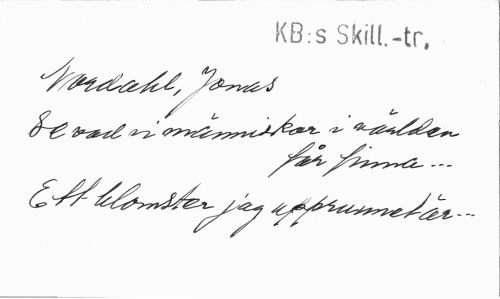 KB:s Skill.-tr.
Nordahl, Jonas
Se vad vi människor i världen
får finna...
Ett blomster jag upprunnet är...